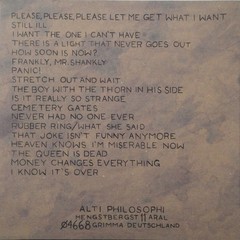 PLEASE, PLEASE, PLEASE LET ME GET WHAT I WANT
STILL ILL
I WANT THE ONE I CAN'T HAVE
THERE IS A LIGHT THAT NEVER GOES OUT
HOW SOON IS NOW?
FRANKLY, MR. SHANKLY
PANIC!
STRETCH OUT AND WAIT
THE BOY WITH THE THORN IN HIS SIDE
IS IT REALLY SO STRANGE
CEMETERY GATES
NEVER HAD NO ONE EVER
RUBBER RING/WHAT SHE SAID
THAT JOKE ISN'T FUNNY ANYMORE
HEAVEN KNOWS I'M MISERABLE NOW
THE QUEEN IS DEAD
MONEY CHANGES EVERYTHING
I KNOW IT'S OVER
ALTI PHILOSOPHI
HENGSTBERGST 11 ARAL
Ø4668 GRIMMA DEUTSCHLAND